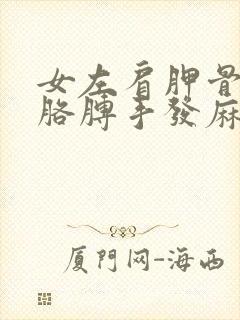 女左肩胛骨
胳膊手發麻
厦門网-海西